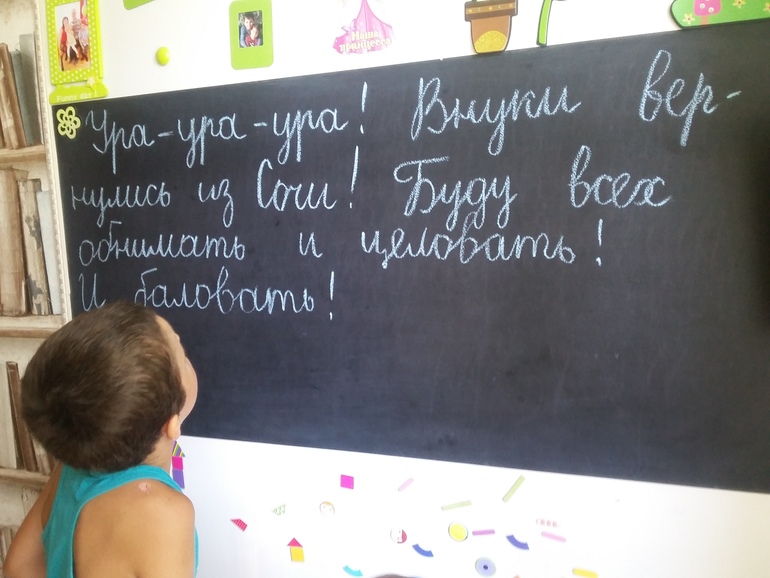 Наша
принцесса
Ура-ура-ура! Внуки вер-
нулись из Сочи! Буду всех
обнимать и целовать!
И баловать!